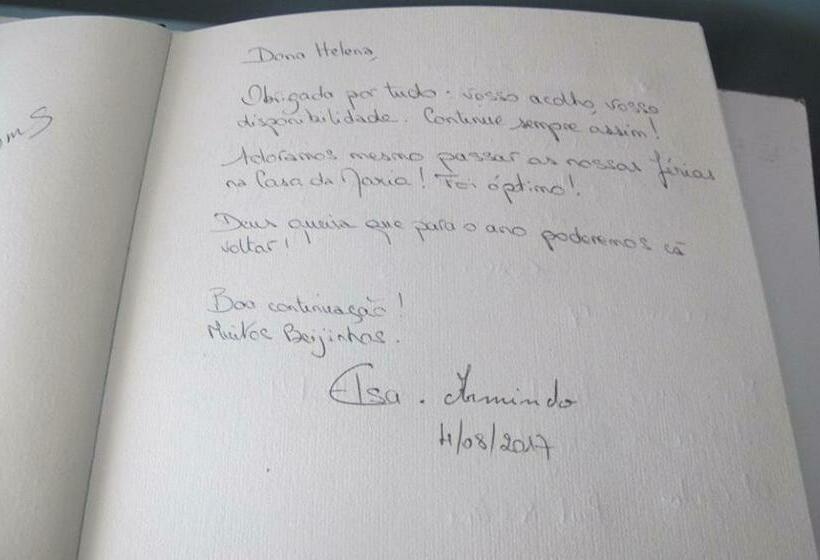 Dona Helena,
Obrigada por tudo: vosso acolho, vosso
disponibilidade. Continue sempre assim!
Adoramos mesmo passar as nossas férias
na Casa da Maria! Foi óptimo!
Deus queira que para o ano poderemos cá
voltar!!
Boa continuação!
Muitos Beijinhos.
Elsa. Armindo
4/08/2017